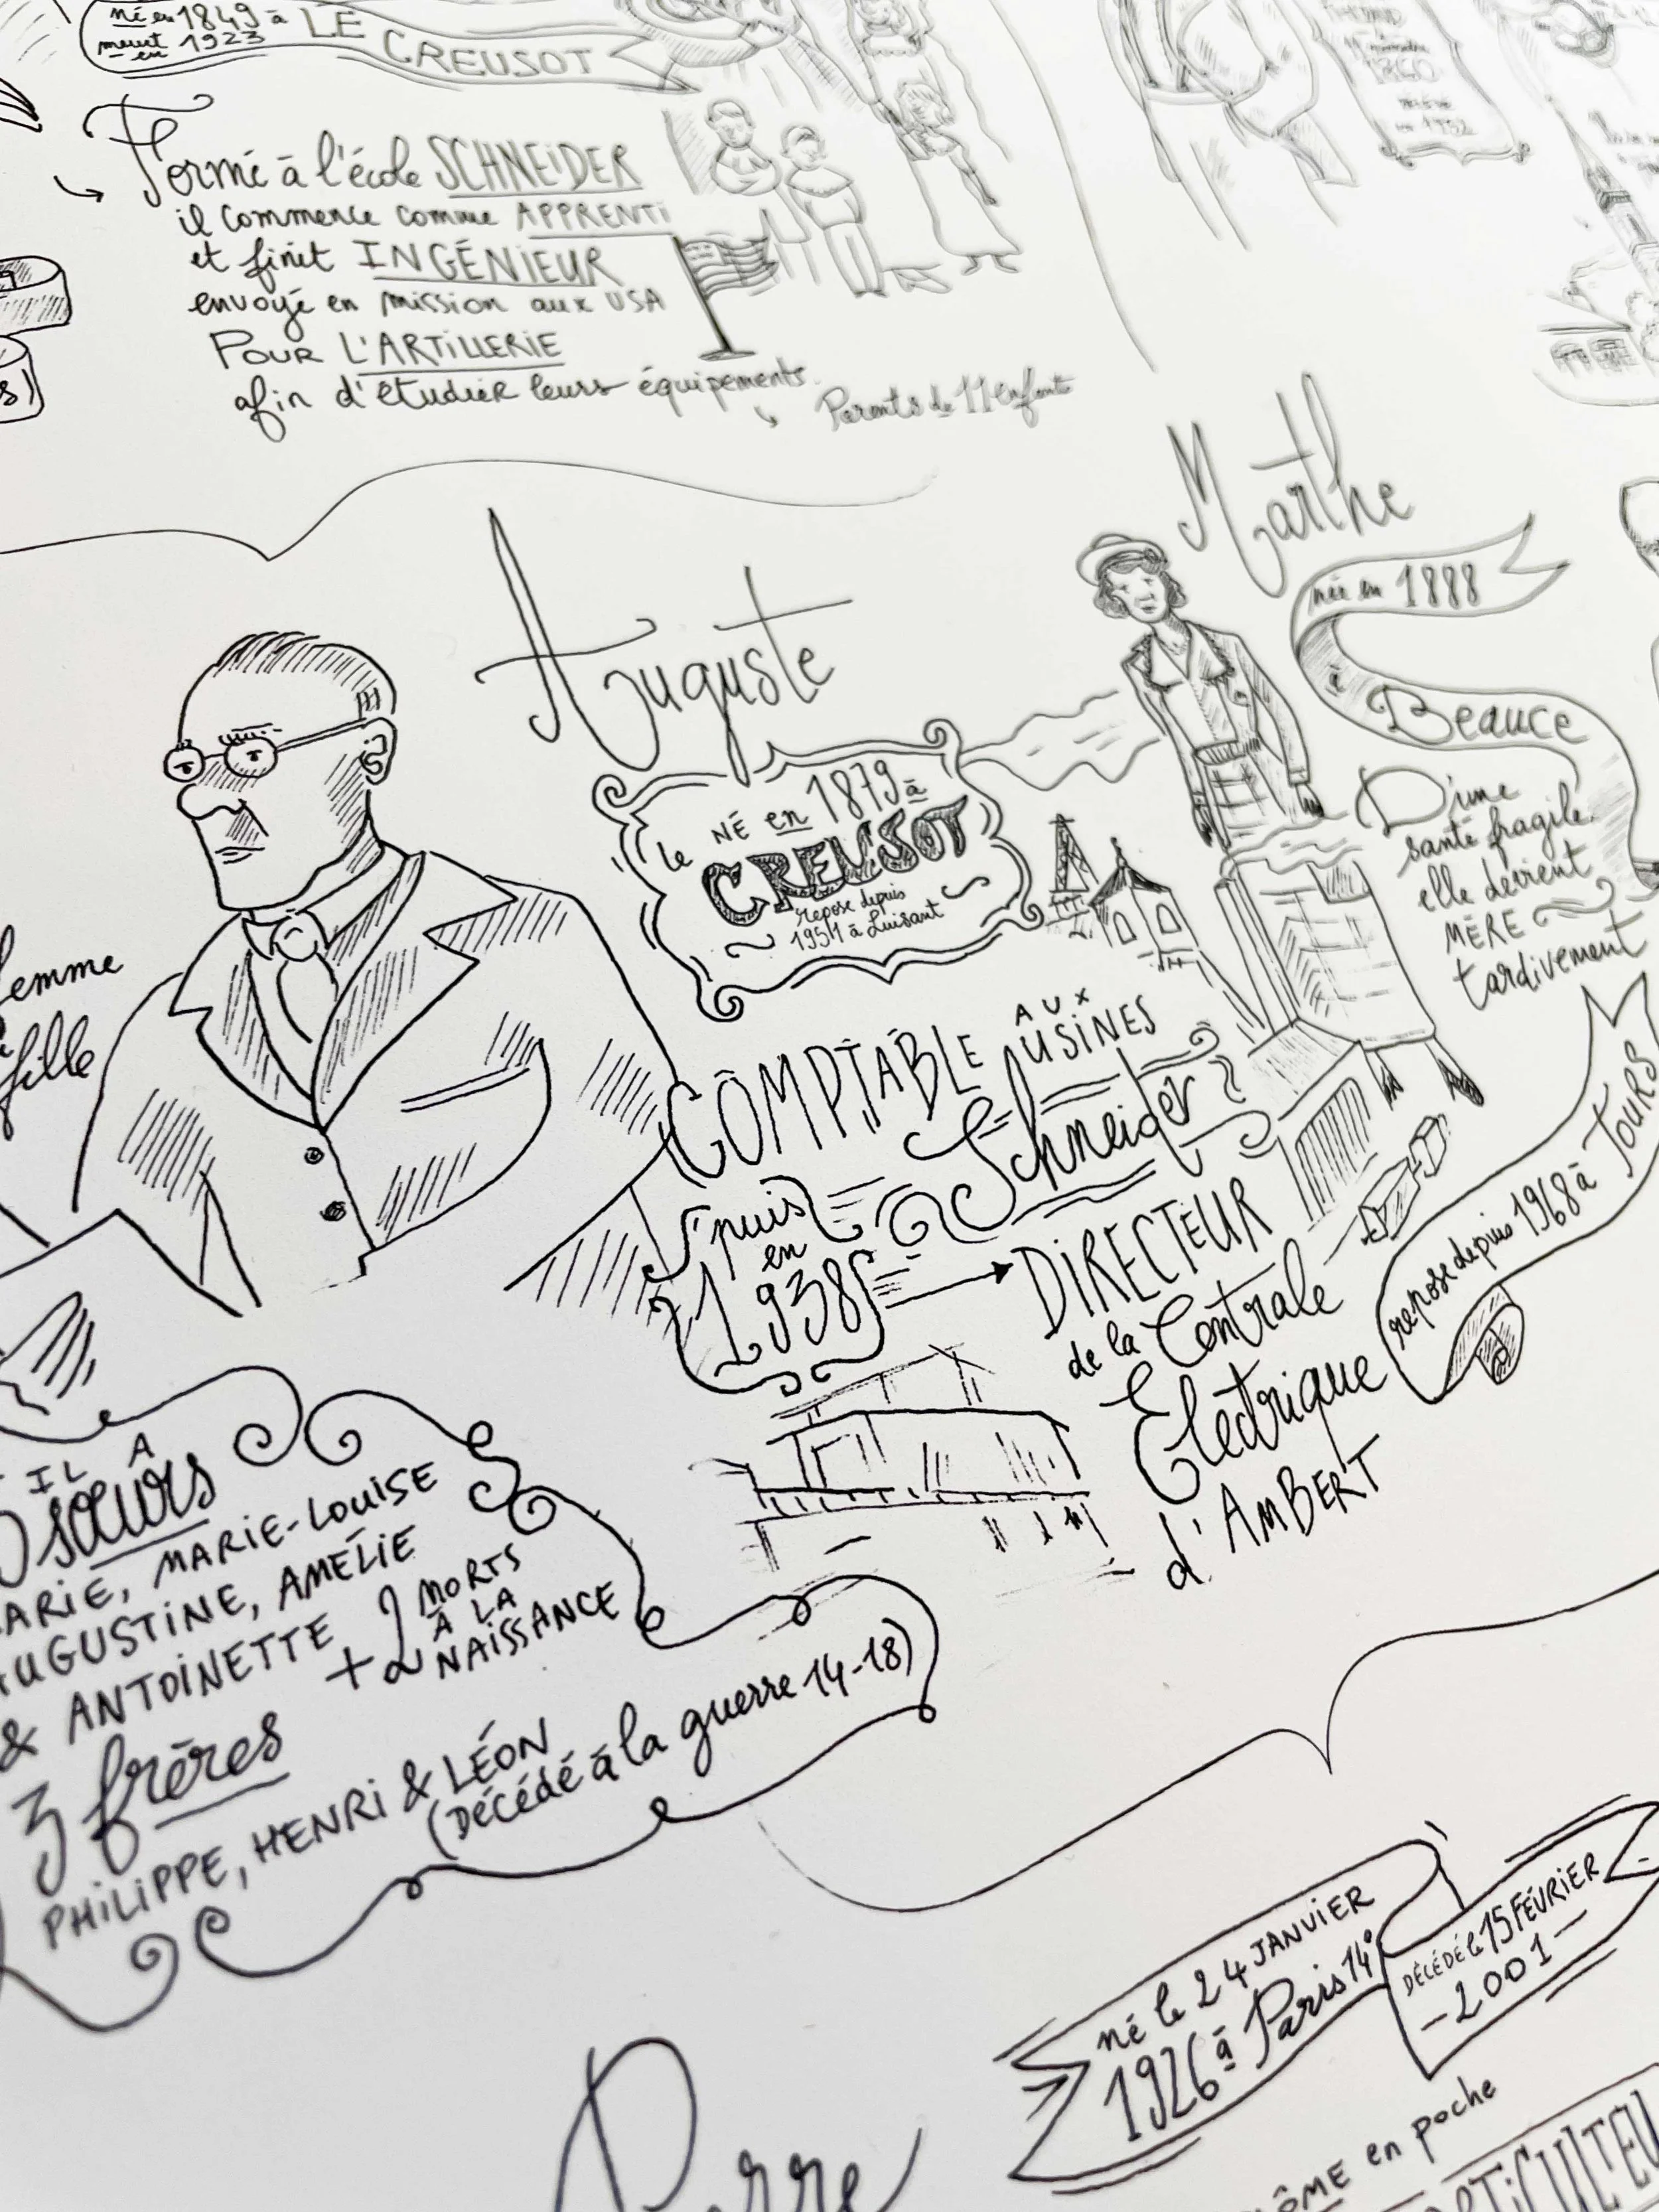 né en 1849 à
meurt en 1923
LE CREUSOT
Formé à l'école SCHNEIDER
il commence comme APPRENTI
et finit INGÉNIEUR
envoyé en mission aux USA
POUR L'ARTILLERIE
afin d'étudier leurs équipements.
Parents de 11 enfants
1860
en 1932
Marthe
née en 1888
à
Beauce
D'une
santé fragile
elle devient
MÈRE
tardivement
repose depuis 1968 à TOURS
Auguste
NÉ en 1879 à
le CREUSOT
repose depuis
1954 à Luisant
COMPTABLE AUX USINES
Schneider
puis
en
1938
DIRECTEUR
de la Centrale
Electrique
d'AMBERT
femme
fille
IL A
sœurs
MARIE, MARIE-LOUISE
AUGUSTINE, AMÉLIE
& ANTOINETTE + 2 MORTS
À LA
NAISSANCE
3 frères
PHILIPPE, HENRI & LÉON
(Décédé à la guerre 14-18)
né le 24 JANVIER
1926 à Paris 14e
DÉCÉDÉ le 15 FÉVRIER
- 2001 -
en poche